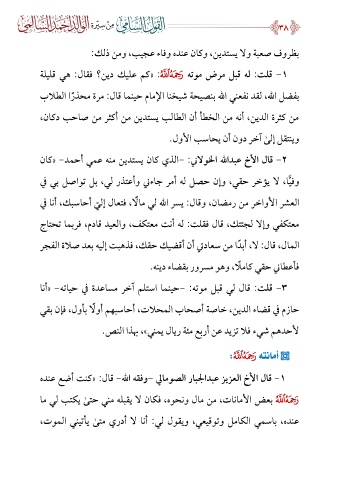 ٣٨ القول السامي من سيرة الوالد أحمد السالمي
بظروف صعبة ولا يستدين، وكان عنده وفاء عجيب، ومن ذلك:
١- قلت: له قبل مرض موته رَحِمَهُ اللَّهُ: «كم عليك دين؟ فقال: هي قليلة
بفضل الله، لقد نفعني الله بنصيحة شيخنا الإمام حينما قال: مرة محذرًا الطلاب
من كثرة الدين، أنه من الخطأ أن الطالب يستدين من أكثر من صاحب دكان،
وينتقل إلىٰ آخر دون أن يحاسب الأول.
٢- قال الأخ عبدالله الخولاني: -الذي كان يستدين منه عمي أحمد- «كان
وفيًّا، لا يؤخر حقي، وإن حصل له أمر جاءني وأعتذر لي، بل تواصل بي في
العشر الأواخر من رمضان، وقال: يسر الله لي مالًا، فتعال إليّ أحاسبك، أنا في
معتكفي وإلا لجئتك، قال فقلت: له أنت معتكف، والعيد قادم، فربما تحتاج
المال، قال: لا، أبدًا من سعادتي أن أقضيك حقك، فذهبت إليه بعد صلاة الفجر
فأعطاني حقي كاملًا، وهو مسرور بقضاء دينه.
٣- قلت: قال لي قبل موته: -حينما استلم آخر مساعدة في حياته- «أنا
حازم في قضاء الدين، خاصة أصحاب المحلات، أحاسبهم أولًا بأول، فإن بقي
لأحدهم شيء فلا تزيد عن أربع مئة ريال يمني»، بهذا النص.
أمانته رَحِمَهُ اللَّهُ:
١- قال الأخ العزيز عبدالجبار الصومالي -وفقه الله- قال: «كنت أضع عنده
رَحِمَهُ اللَّهُ بعض الأمانات، من مال ونحوه، فكان لا يقبله مني حتىٰ يكتب لي ما
عنده، باسمي الكامل وتوقيعي، ويقول لي: أنا لا أدري متىٰ يأتيني الموت،